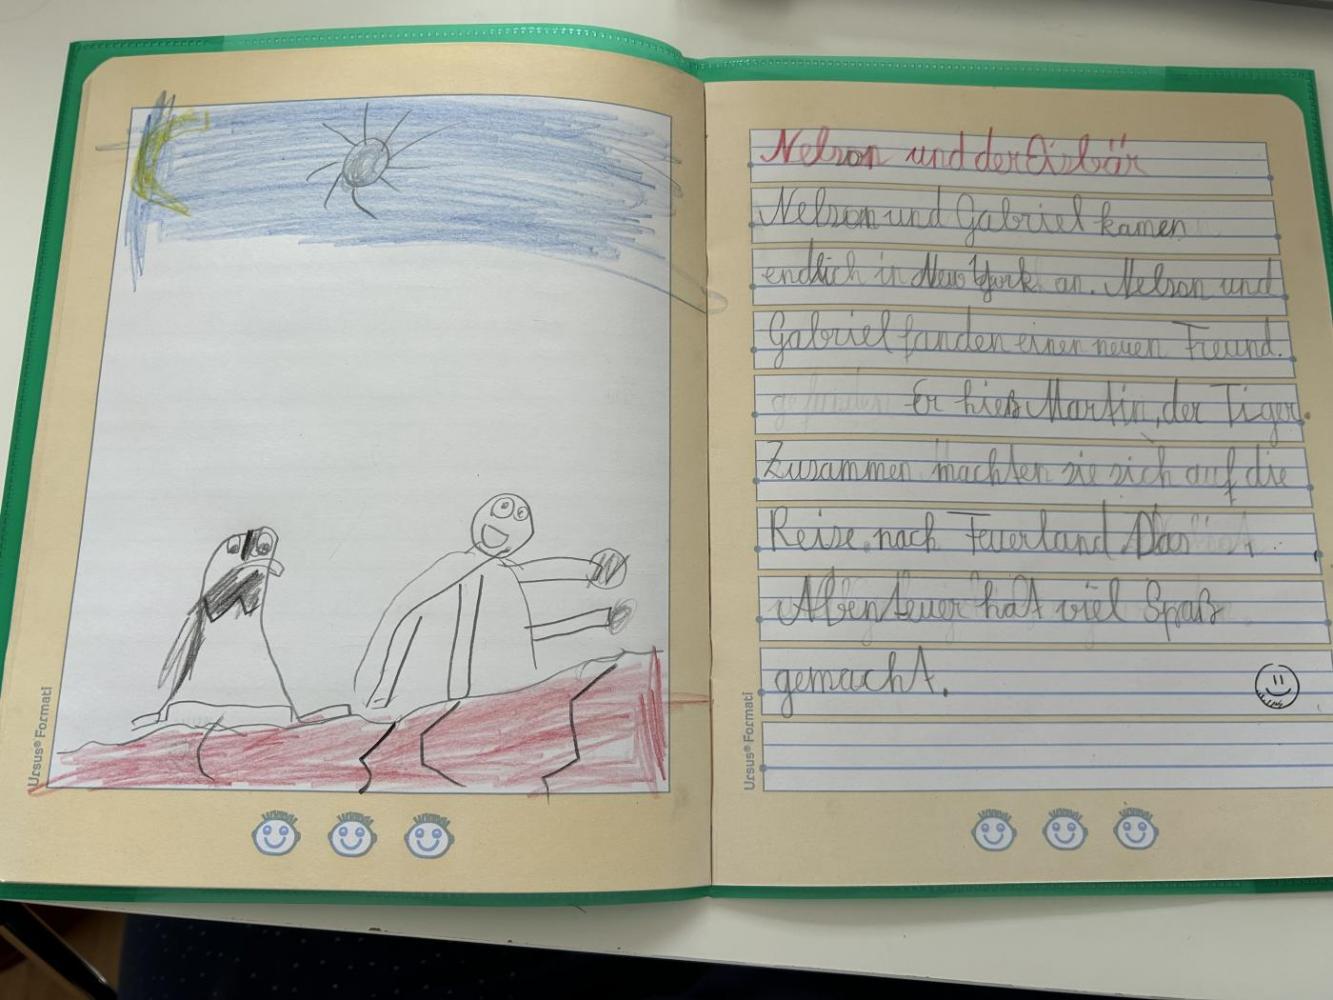 Nelson und der Eisbär
Nelson und Gabriel kamen
endlich in New York an. Nelson und
Gabriel fanden einen neuen Freund.
Er hieß Martin, der Tiger.
Zusammen machten sie sich auf die
Reise nach Feuerland. Das
Abenteuer hat viel Spaß
gemacht.
Ursus® Formati
Ursus® Formati